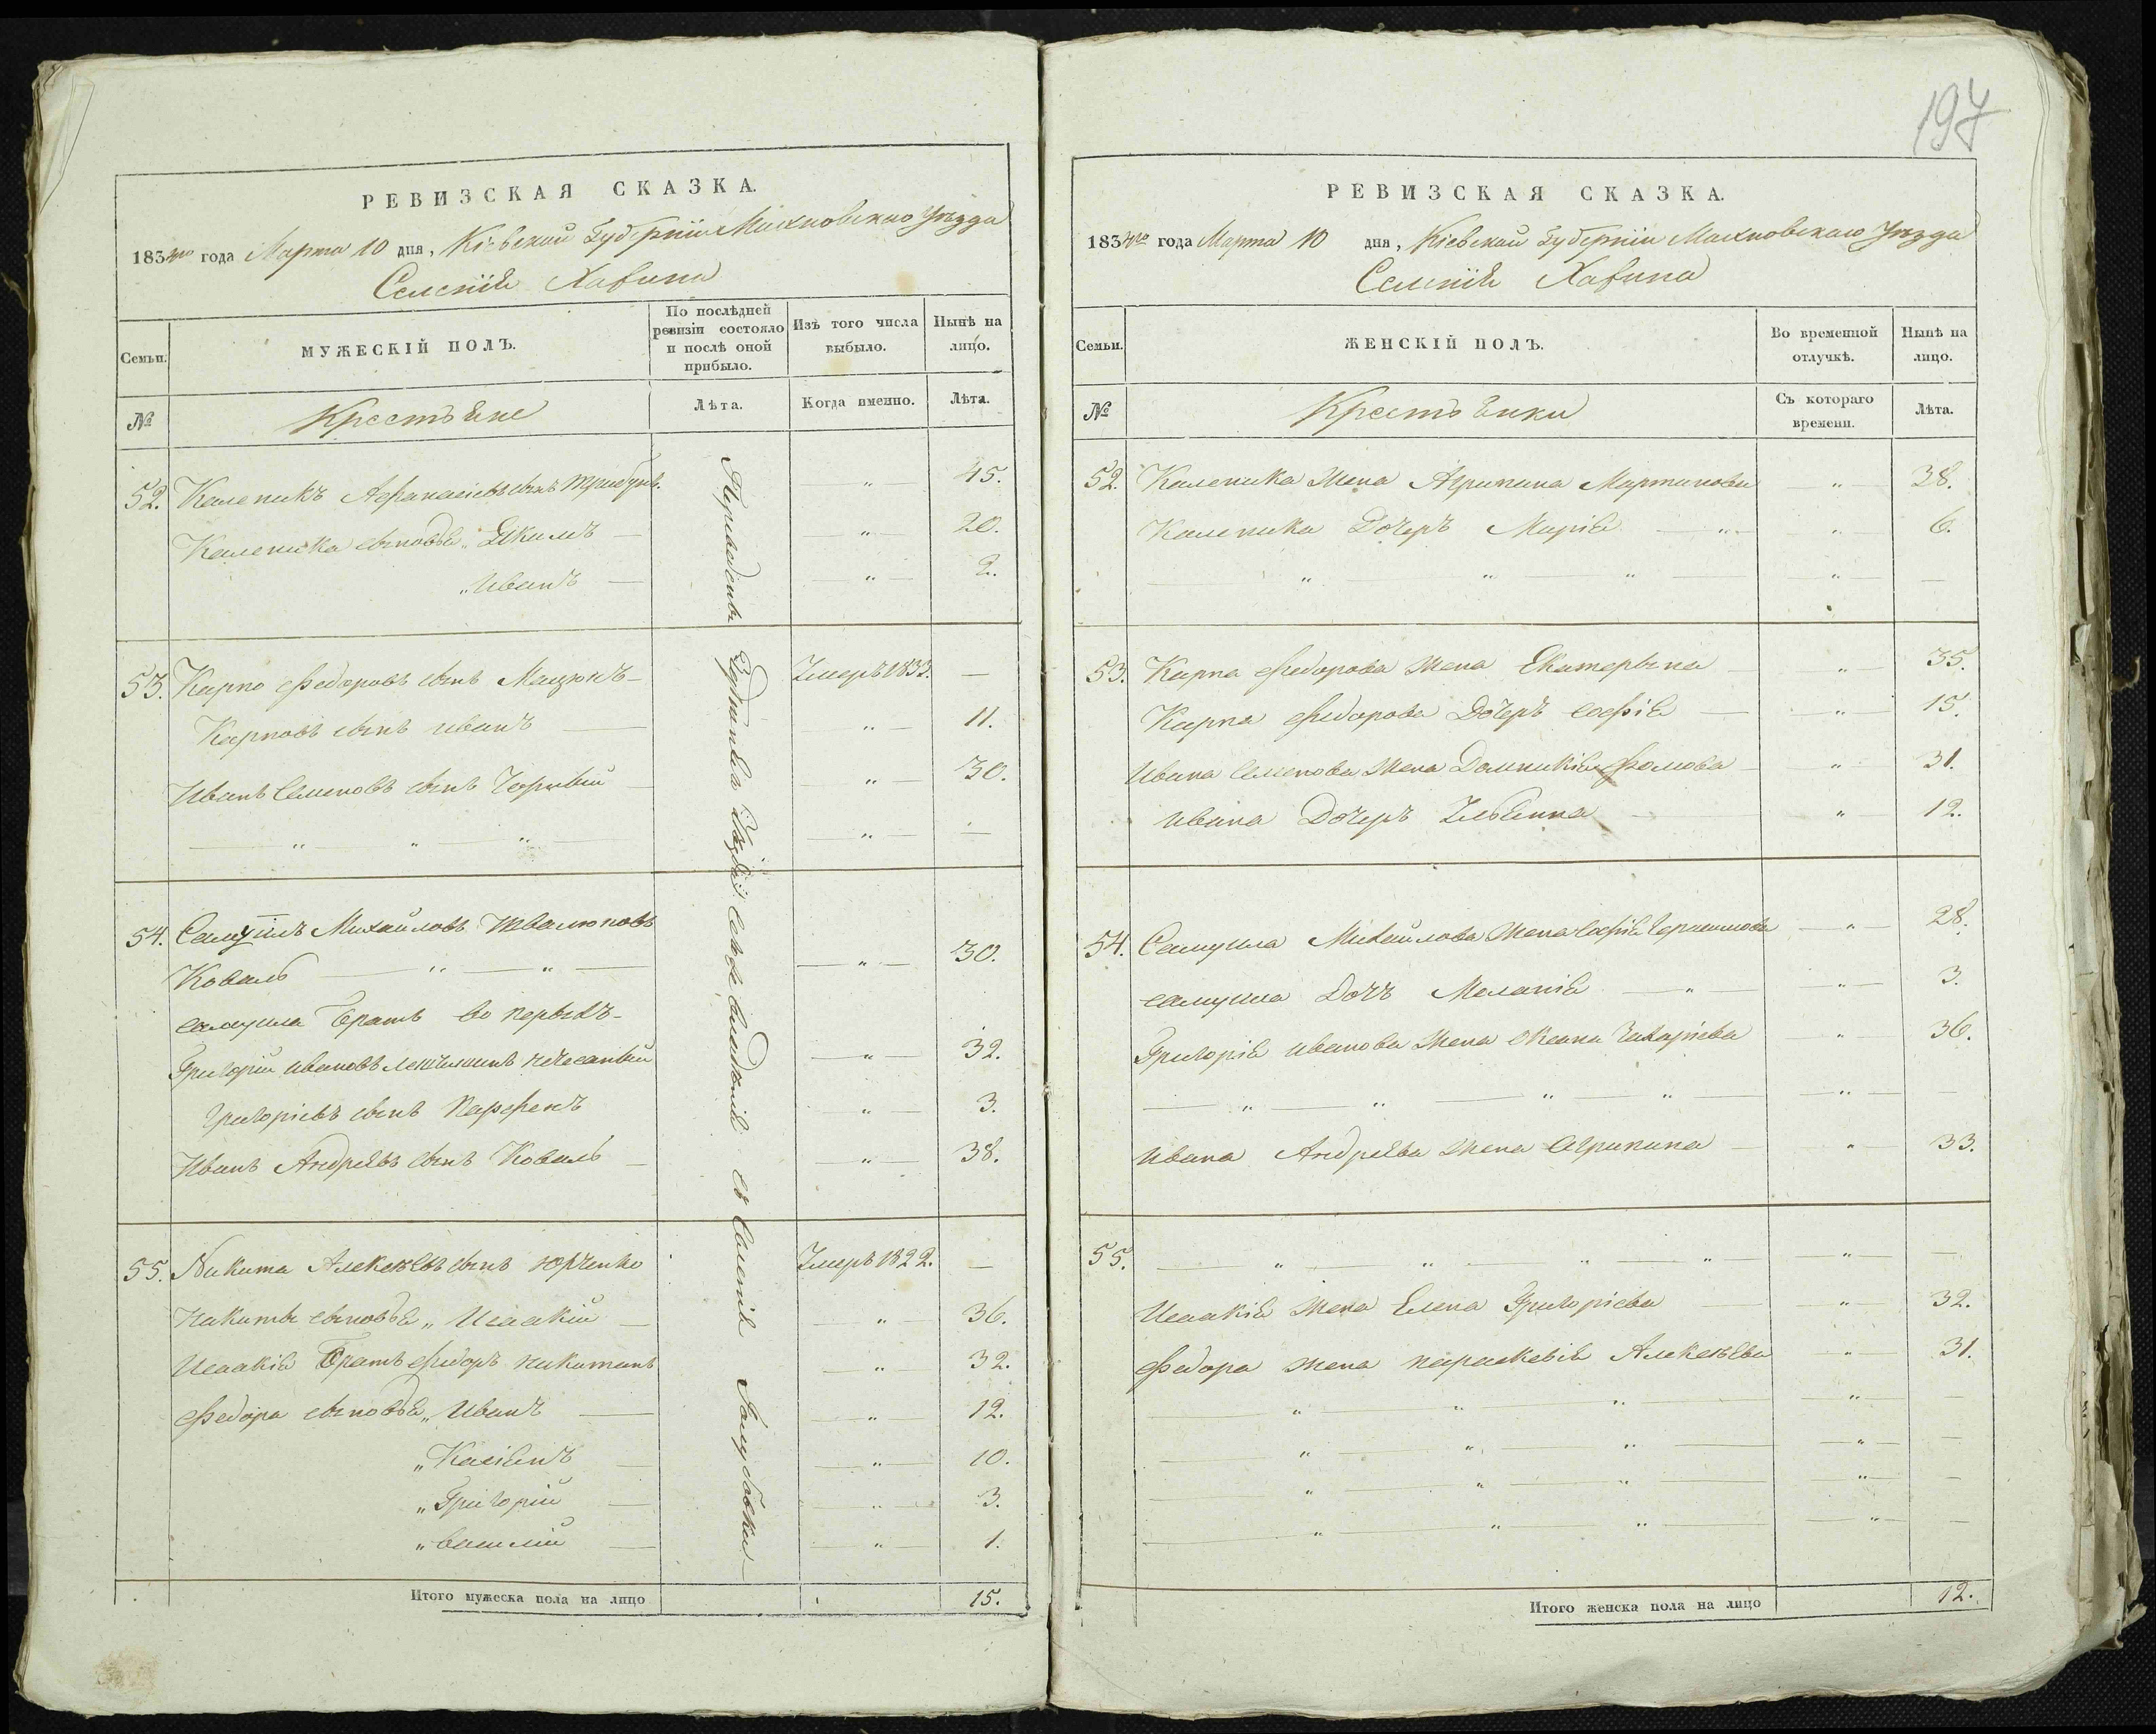 РЕВИЗСКАЯ СКАЗКА.
1834го года Марта 10 дня, Кіевской Губерніи Махновскаго Уѣзда
Селенія Хажина
Семьи.
МУЖЕСКІЙ ПОЛЪ.
По послѣдней ревизіи состояло и послѣ оной прибыло.
Изъ того числа выбыло.
Нынѣ на лицо.
№
Крестьяне
Лѣта.
Когда именно.
Лѣта.
52. Каленикъ Афанасіевъ сынъ " 45.
Каленика сыновья „Якимъ " 20.
„Иванъ " 2.
53. Карпо Федоровъ сынъ Мацюкъ Умеръ 1833. —
Карповъ сынъ Иванъ " 11.
Иванъ Семеновъ сынъ Чорный " 30.
" " " " —
54. Самуилъ Михайловъ
Коваль " " " 30.
Самуила Братъ во первыхъ
Григорій Ивановъ " 32.
Григоріевъ сынъ Парфенъ " 3.
Иванъ Андреевъ сынъ Коваль " 38.
55. Никита Алексѣевъ сынъ Юрченко Умеръ 1822. —
Никиты сыновья „ Исаакій " 36.
Исаакія Братъ Федоръ Никитинъ " 32.
Федора сыновья „ Иванъ " 12.
„Касіянъ " 10.
„Григорій " 3.
„Василій " 1.
Итого мужеска пола на лицо 15.
197
РЕВИЗСКАЯ СКАЗКА.
1834го года Марта 10 дня, Кіевской Губерніи Махновскаго Уѣзда
Селенія Хажина
Семьи.
ЖЕНСКІЙ ПОЛЪ.
Во временной отлучкѣ.
Нынѣ на лицо.
№
Крестьянки
Съ котораго времени.
Лѣта.
52. Каленика Жена Агрипина Мартинова " 38.
Каленика Дочеръ Марія " " 6.
" " " " —
53. Карпа Федорова Жена Екатерына " 35.
Карпа Федорова Дочеръ Софія " 15.
Ивана Семенова Жена Домникія Фомова " 31.
Ивана Дочеръ Ульянна " 12.
54. Самуила Михайлова Жена Софія " 28.
Самуила Дочъ Меланія " " 3.
Григорія Иванова Жена Оксана Захаріева " 36.
" " " " " —
Ивана Андреева Жена Агрипина " 33.
55. " " " " " —
Исаакія Жена Елена Григоріева " 32.
Федора жена Параскевія Алексѣева " 31.
" " " " —
" " " " —
" " " " —
" " " " —
Итого женска пола на лицо 12.